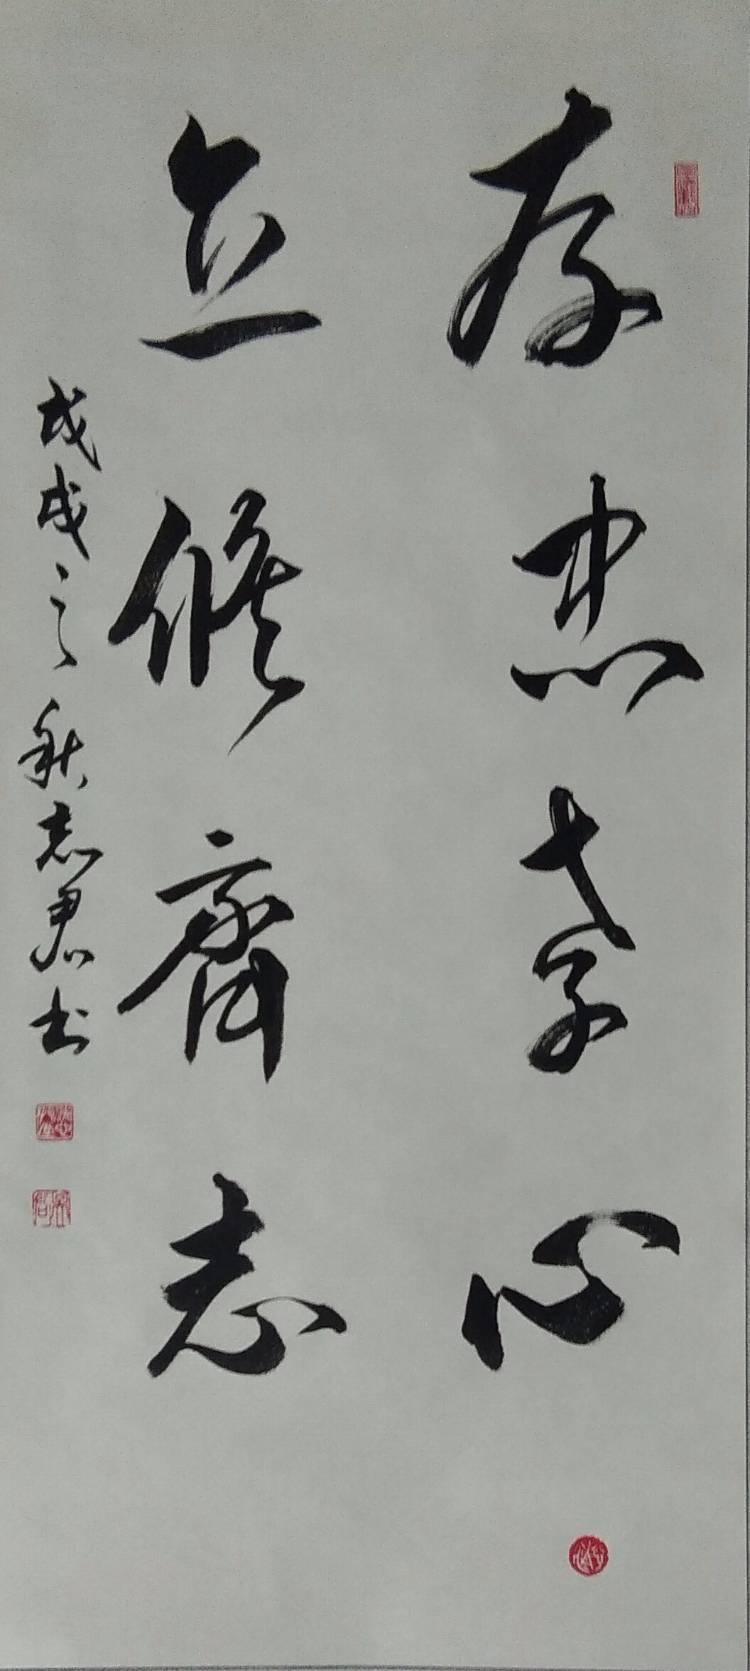 存忠孝心
立脩齊志
戊戌之秋志君书